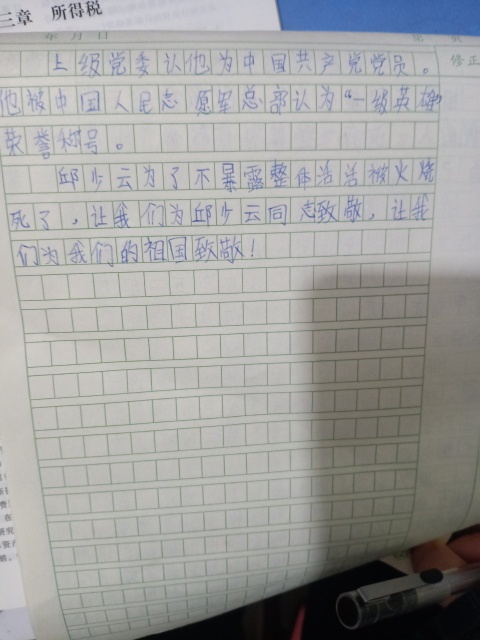 三章 所得税
年 月 日
修正
上级党委认他为中国共产党党员。
他被中国人民志愿军总部认为“一级英雄”
荣誉称号。
邱少云为了不暴露整体活活被火烧
死了，让我们为邱少云同志致敬，让我
们为我们的祖国致敬！